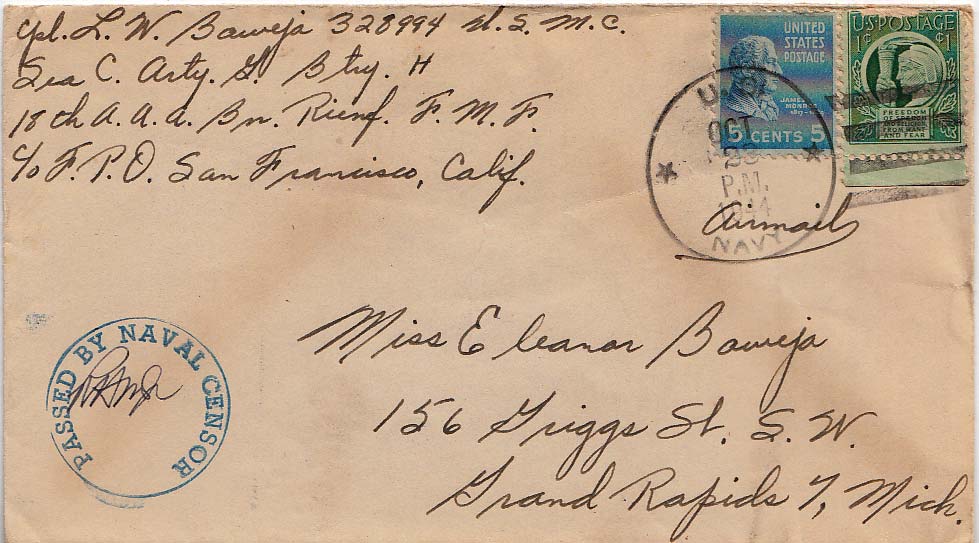 Cpl. L. W. Boweja 328994 U.S.M.C.
Sea C. Arty. G. Btry. H
18th A.A.A. Bn. Rienf. F.M.F.
c/o F.P.O. San Francisco, Calif.
UNITED
STATES
POSTAGE
JAMES
MONROE
5 CENTS 5
U.S. POSTAGE
1¢ ¢1
FREEDOM
OF SPEECH
AND RELIGION
FROM WANT
AND FEAR
U.S.
OCT
P.M.
1944
NAVY
Airmail
PASSED BY NAVAL CENSOR
Miss Eleanor Boweja
156 Griggs St. S.W.
Grand Rapids 7, Mich.